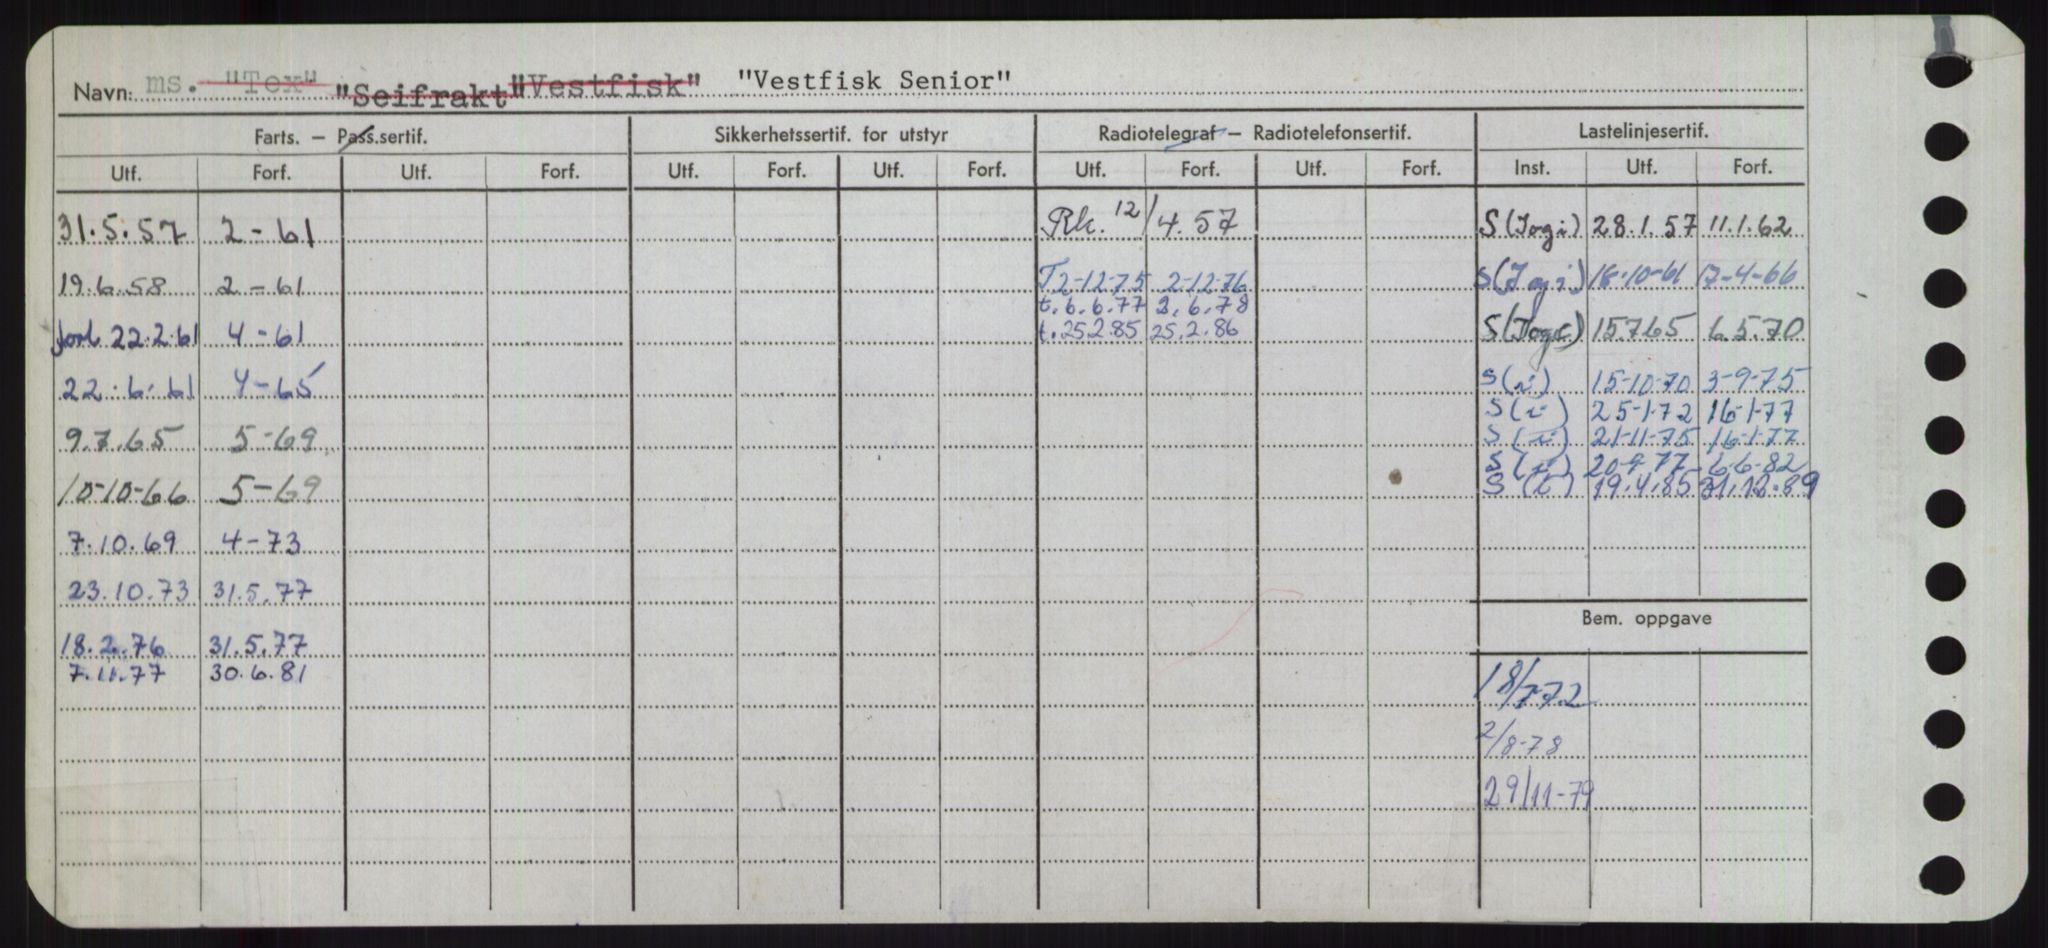 Navn: ms. "Tox" "Seifrakt" "Vestfisk" "Vestfisk Senior"
Farts. – Pass.sertif. Sikkerhetssertif. for utstyr Radiotelegraf – Radiotelefonsertif. Lastelinjesertif.
Utf. Forf. Utf. Forf. Utf. Forf. Utf. Forf. Utf. Forf. Utf. Forf. Inst. Utf. Forf.
31.5.57 2-61 Rk. 12/4.57 S (Jogi) 28.1.57 11.1.62
19.6.58 2-61 T 2-12-75 2-12-76 S (Jogi) 18-10-61 17-4-66
t. 6.6.77 2.6.78
forl 22.2.61 4-61 t. 25.2.85 25.2.86 S 15.7.65 6.5.70
22.6.61 4-65 S (i) 15-10-70 3-9-75
S (i) 25-1-72 16-1-77
9.7.65 5-69 S (i) 21-11-75 16-1-77
S (i) 20-9-77 6-6-82
10-10-66 5-69 S (i) 19.4.85 31.12.89
7.10.69 4-73
23.10.73 31.5.77
Bem. oppgave
18.2.76 31.5.77
7.11.77 30.6.81 18/7-72
2/8-78
29/11-79